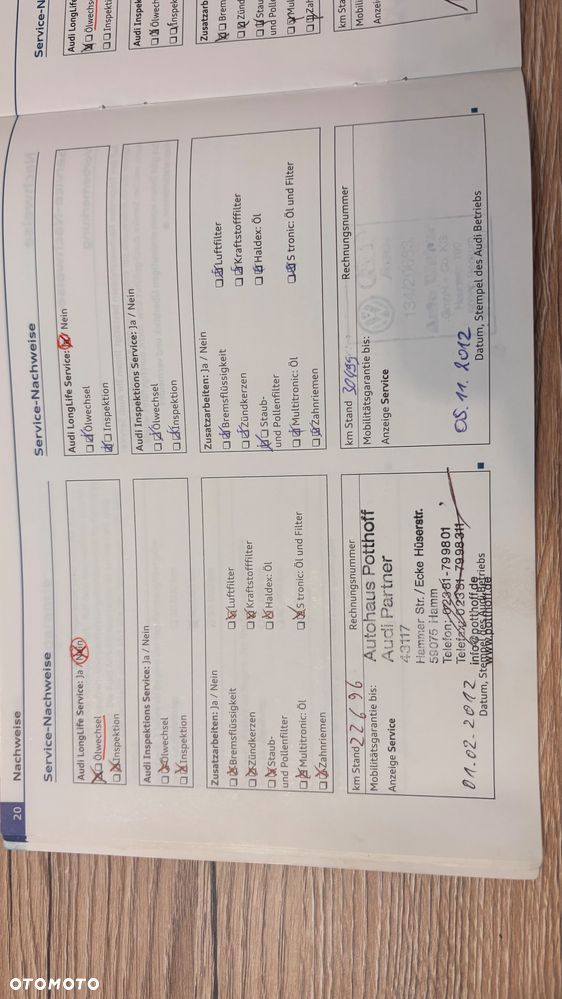 20 Nachweise
Service-Nachweise
Audi LongLife Service: Ja / Nein
Ölwechsel
Inspektion
Audi Inspektions Service: Ja / Nein
Ölwechsel
Inspektion
Zusatzarbeiten: Ja / Nein
Bremsflüssigkeit
Luftfilter
Zündkerzen
Kraftstofffilter
Staub-
und Pollenfilter
Haldex: Öl
Multitronic: Öl
S tronic: Öl und Filter
Zahnriemen
km Stand 22696 Rechnungsnummer
Mobilitätsgarantie bis:
Anzeige Service
Autohaus Potthoff
Audi Partner
43117
Hammer Str./Ecke Hüserstr.
59075 Hamm
Telefon: 02381-799801
Telefax 02381-7998311
info@potthoff.de
www.potthoff.de
01.02.2012
Datum, Stempel des Audi Betriebs
Service-Nachweise
Audi LongLife Service: Ja / Nein
Ölwechsel
Inspektion
Audi Inspektions Service: Ja / Nein
Ölwechsel
Inspektion
Zusatzarbeiten: Ja / Nein
Bremsflüssigkeit
Luftfilter
Zündkerzen
Kraftstofffilter
Staub-
und Pollenfilter
Haldex: Öl
Multitronic: Öl
S tronic: Öl und Filter
Zahnriemen
km Stand Rechnungsnummer
Mobilitätsgarantie bis:
Anzeige Service
05.11.2012
Datum, Stempel des Audi Betriebs
Service-N
Audi LongLife
Ölwechse
Inspekti
Audi Inspek
Ölwech
Inspek
Zusatzarb
Brem
Zünd
Stau
und Pol
Mul
Zah
km Sta
Mobili
Anzeig
OTOMOTO